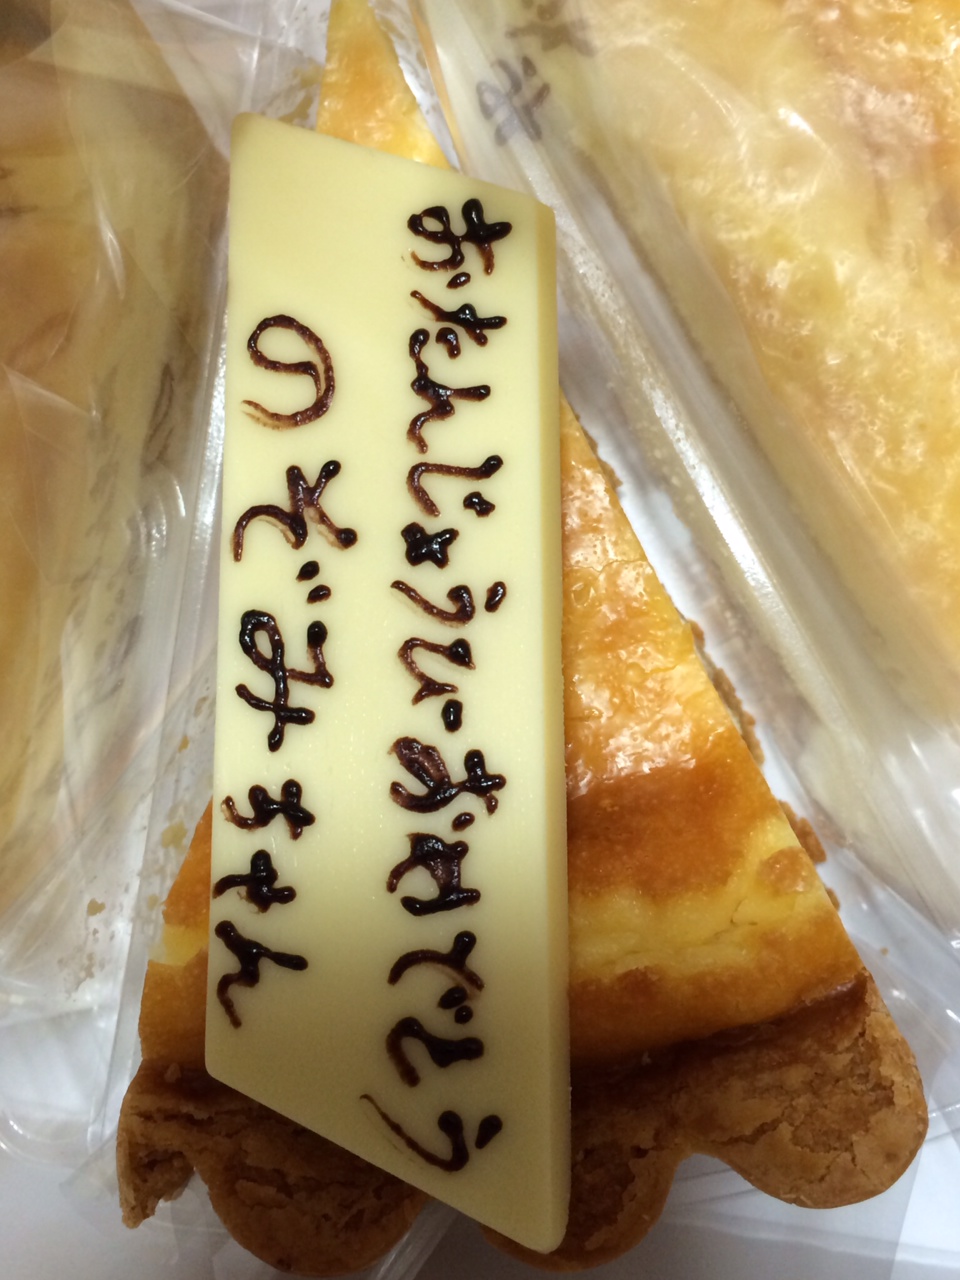 おたんじょうびおめでとう
のぞみちゃん